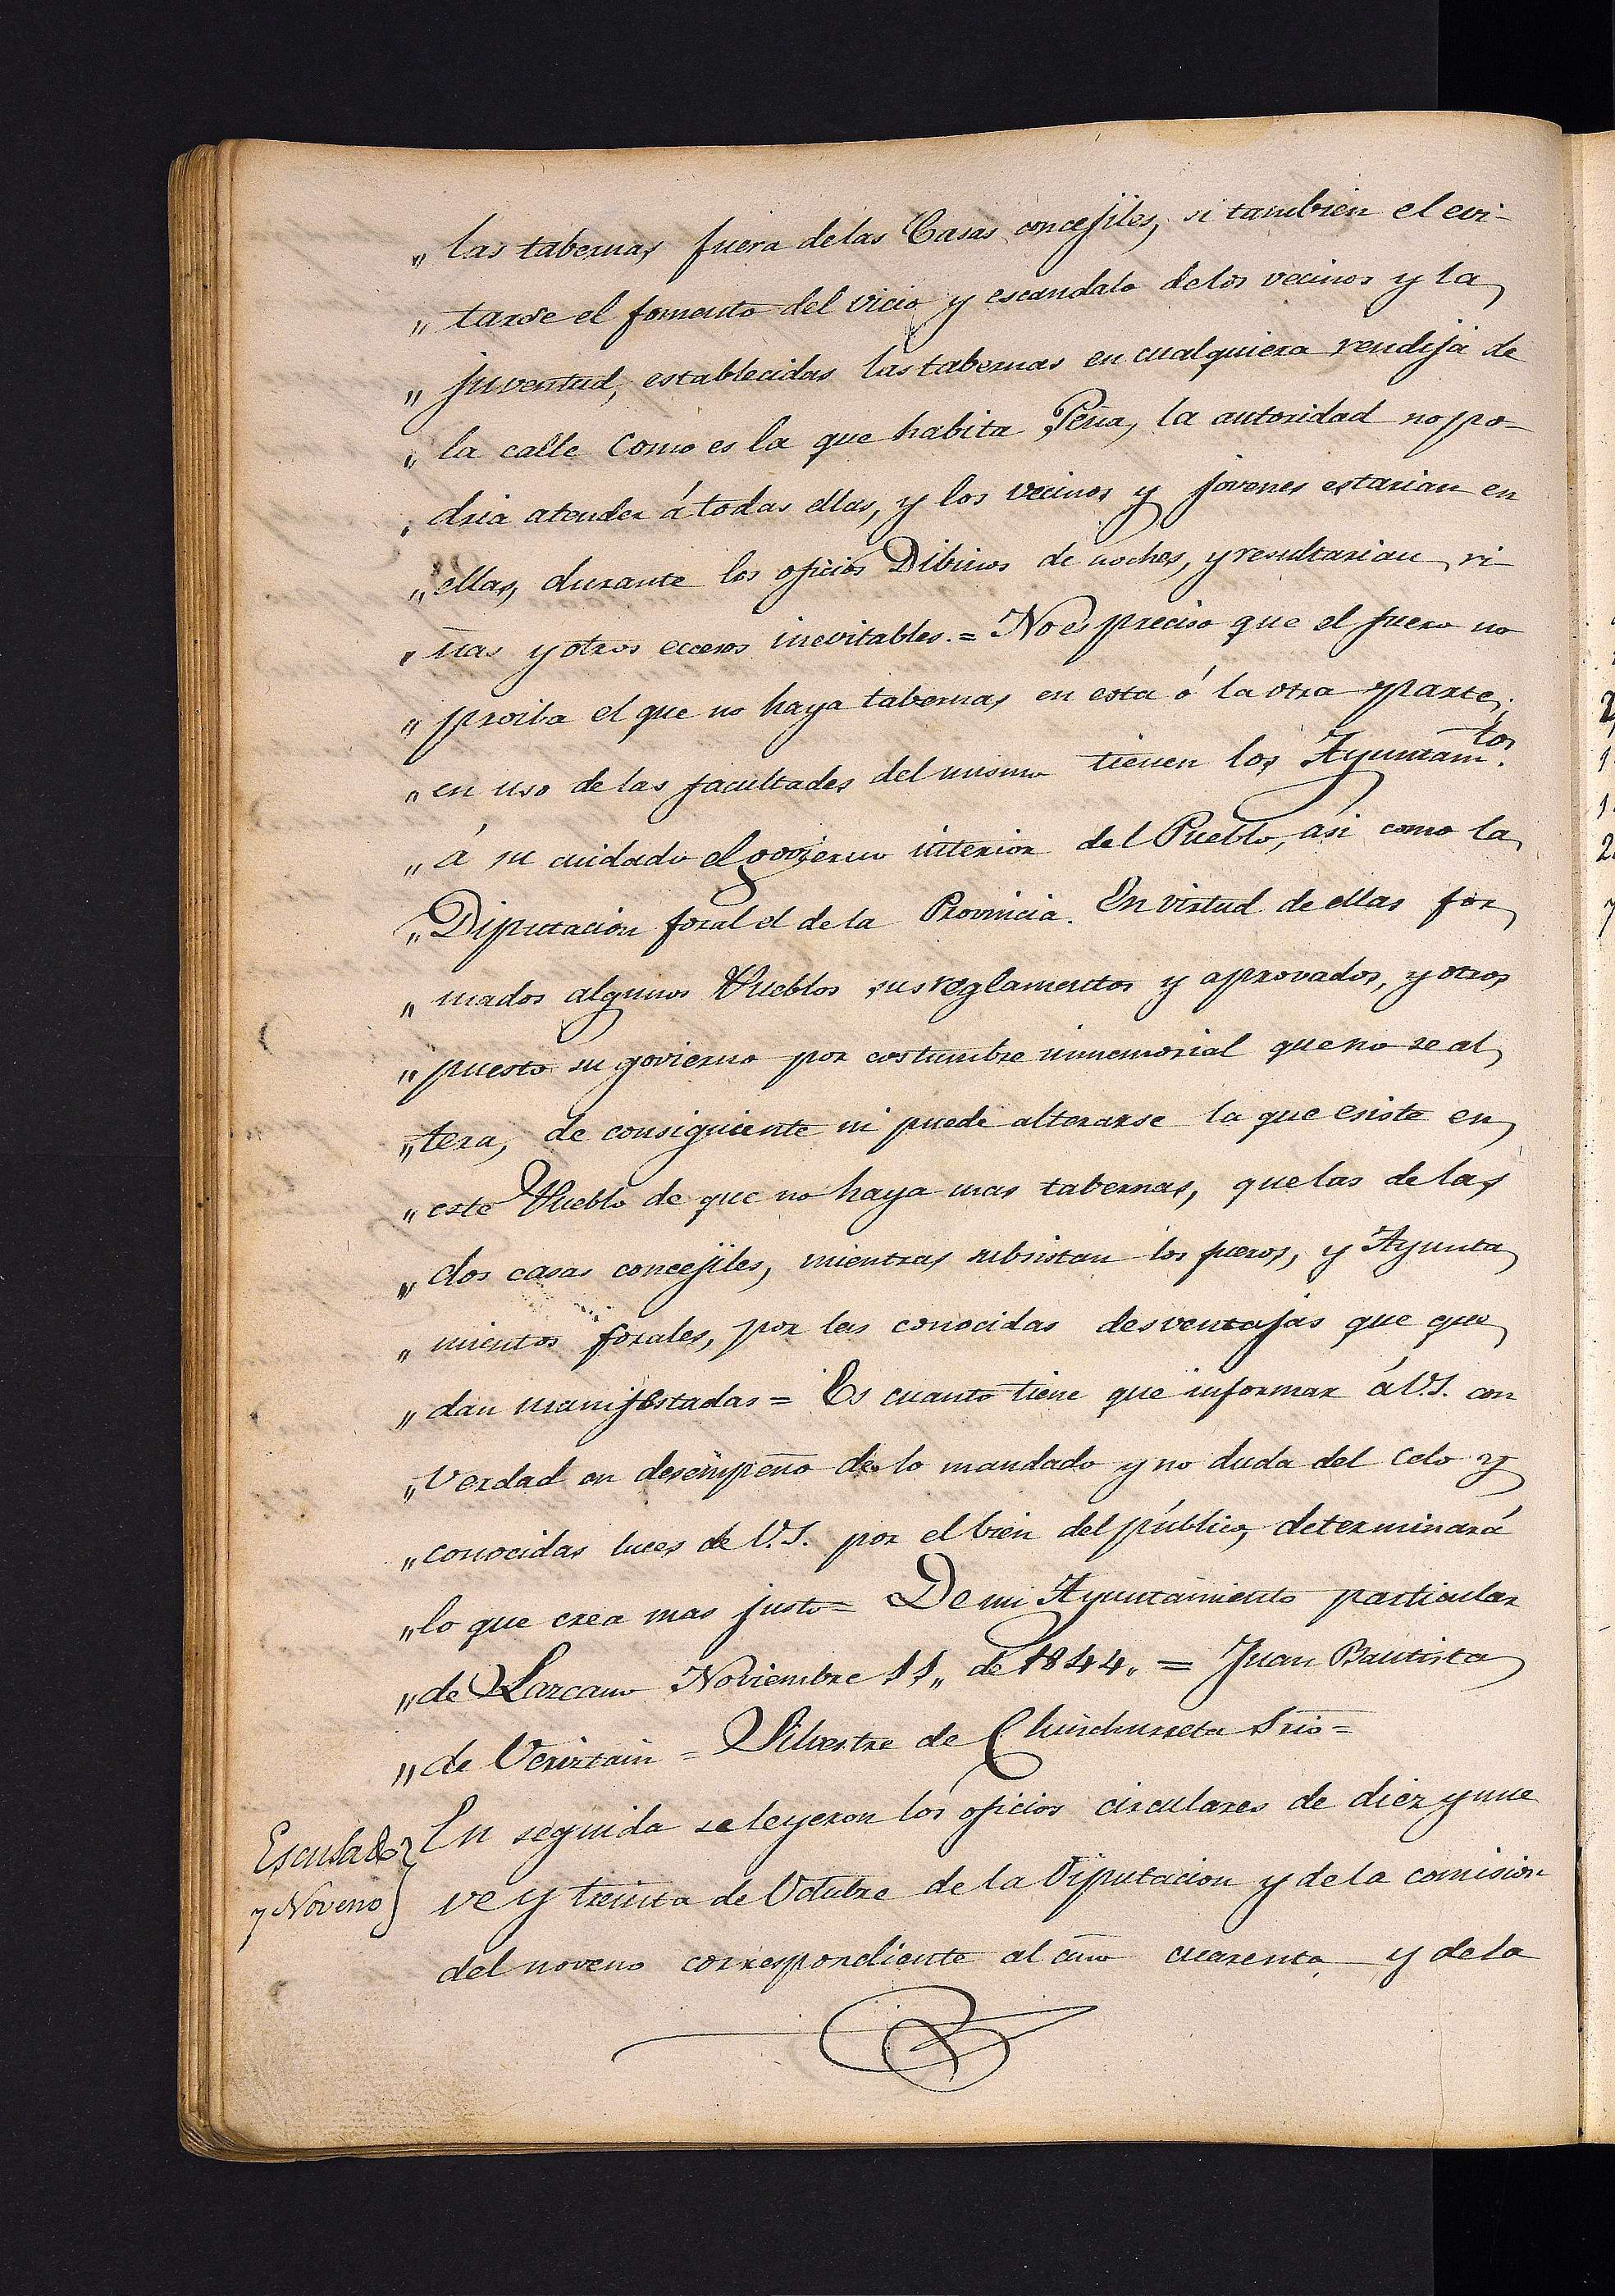 „ las tabernas fuera delas Casas concejiles, si tambien el evi-
„ tarse el fomento del vicio y escandalo delos vecinos y la
„ juventud, establecidas las tabernas en cualquiera rendija de
„ la calle como es la que habita Peña, la autoridad no po-
„ dria atender á todas ellas, y los vecinos y jovenes estarian en
„ ellas, durante los oficios Dibinos de noches, y resultarian ri-
„ ñas y otros eccesos inevitables.= No es preciso que el fuero no
„ proiba el que no haya tabernas en esta ó la otra parte;
„ en uso de las facultades del mismo tienen los Ayuntam.tos
„ á su cuidado el govierno interior del Pueblo, asi como la
„ Diputacion foral el de la Provincia. En virtud de ellas for
„ mados algunos Pueblos sus reglamentos y aprovados, y otros
„ puesto su govierno por costumbre inmemorial que no se al
„ tera, de consiguiente ni puede alterarse la que esiste en
„ este Pueblo de que no haya mas tabernas, que las de las
„ dos casas concejiles, mientras subsistan los fueros, y Ayunta
„ mientos forales, por las conocidas desventajas que que
„ dan manifestadas = Es cuanto tiene que informar á V.S. con
„ verdad en desempeño de lo mandado y no duda del celo y
„ conocidas luces de V.S. por el bien del público, determinará
„ lo que crea mas justo= De mi Ayuntamiento particular
„ de Lazcano Noviembre 11„ de 1844„ = Juan Bautista
„ de Verirtain = Silvestre de Chinchurreta Srio=
Escusado
y Noveno
En seguida se leyeron los oficios circulares de diez y nue
ve y treinta de Octubre de la Diputacion y de la comision
del noveno correspondiente al año cuarenta y dela